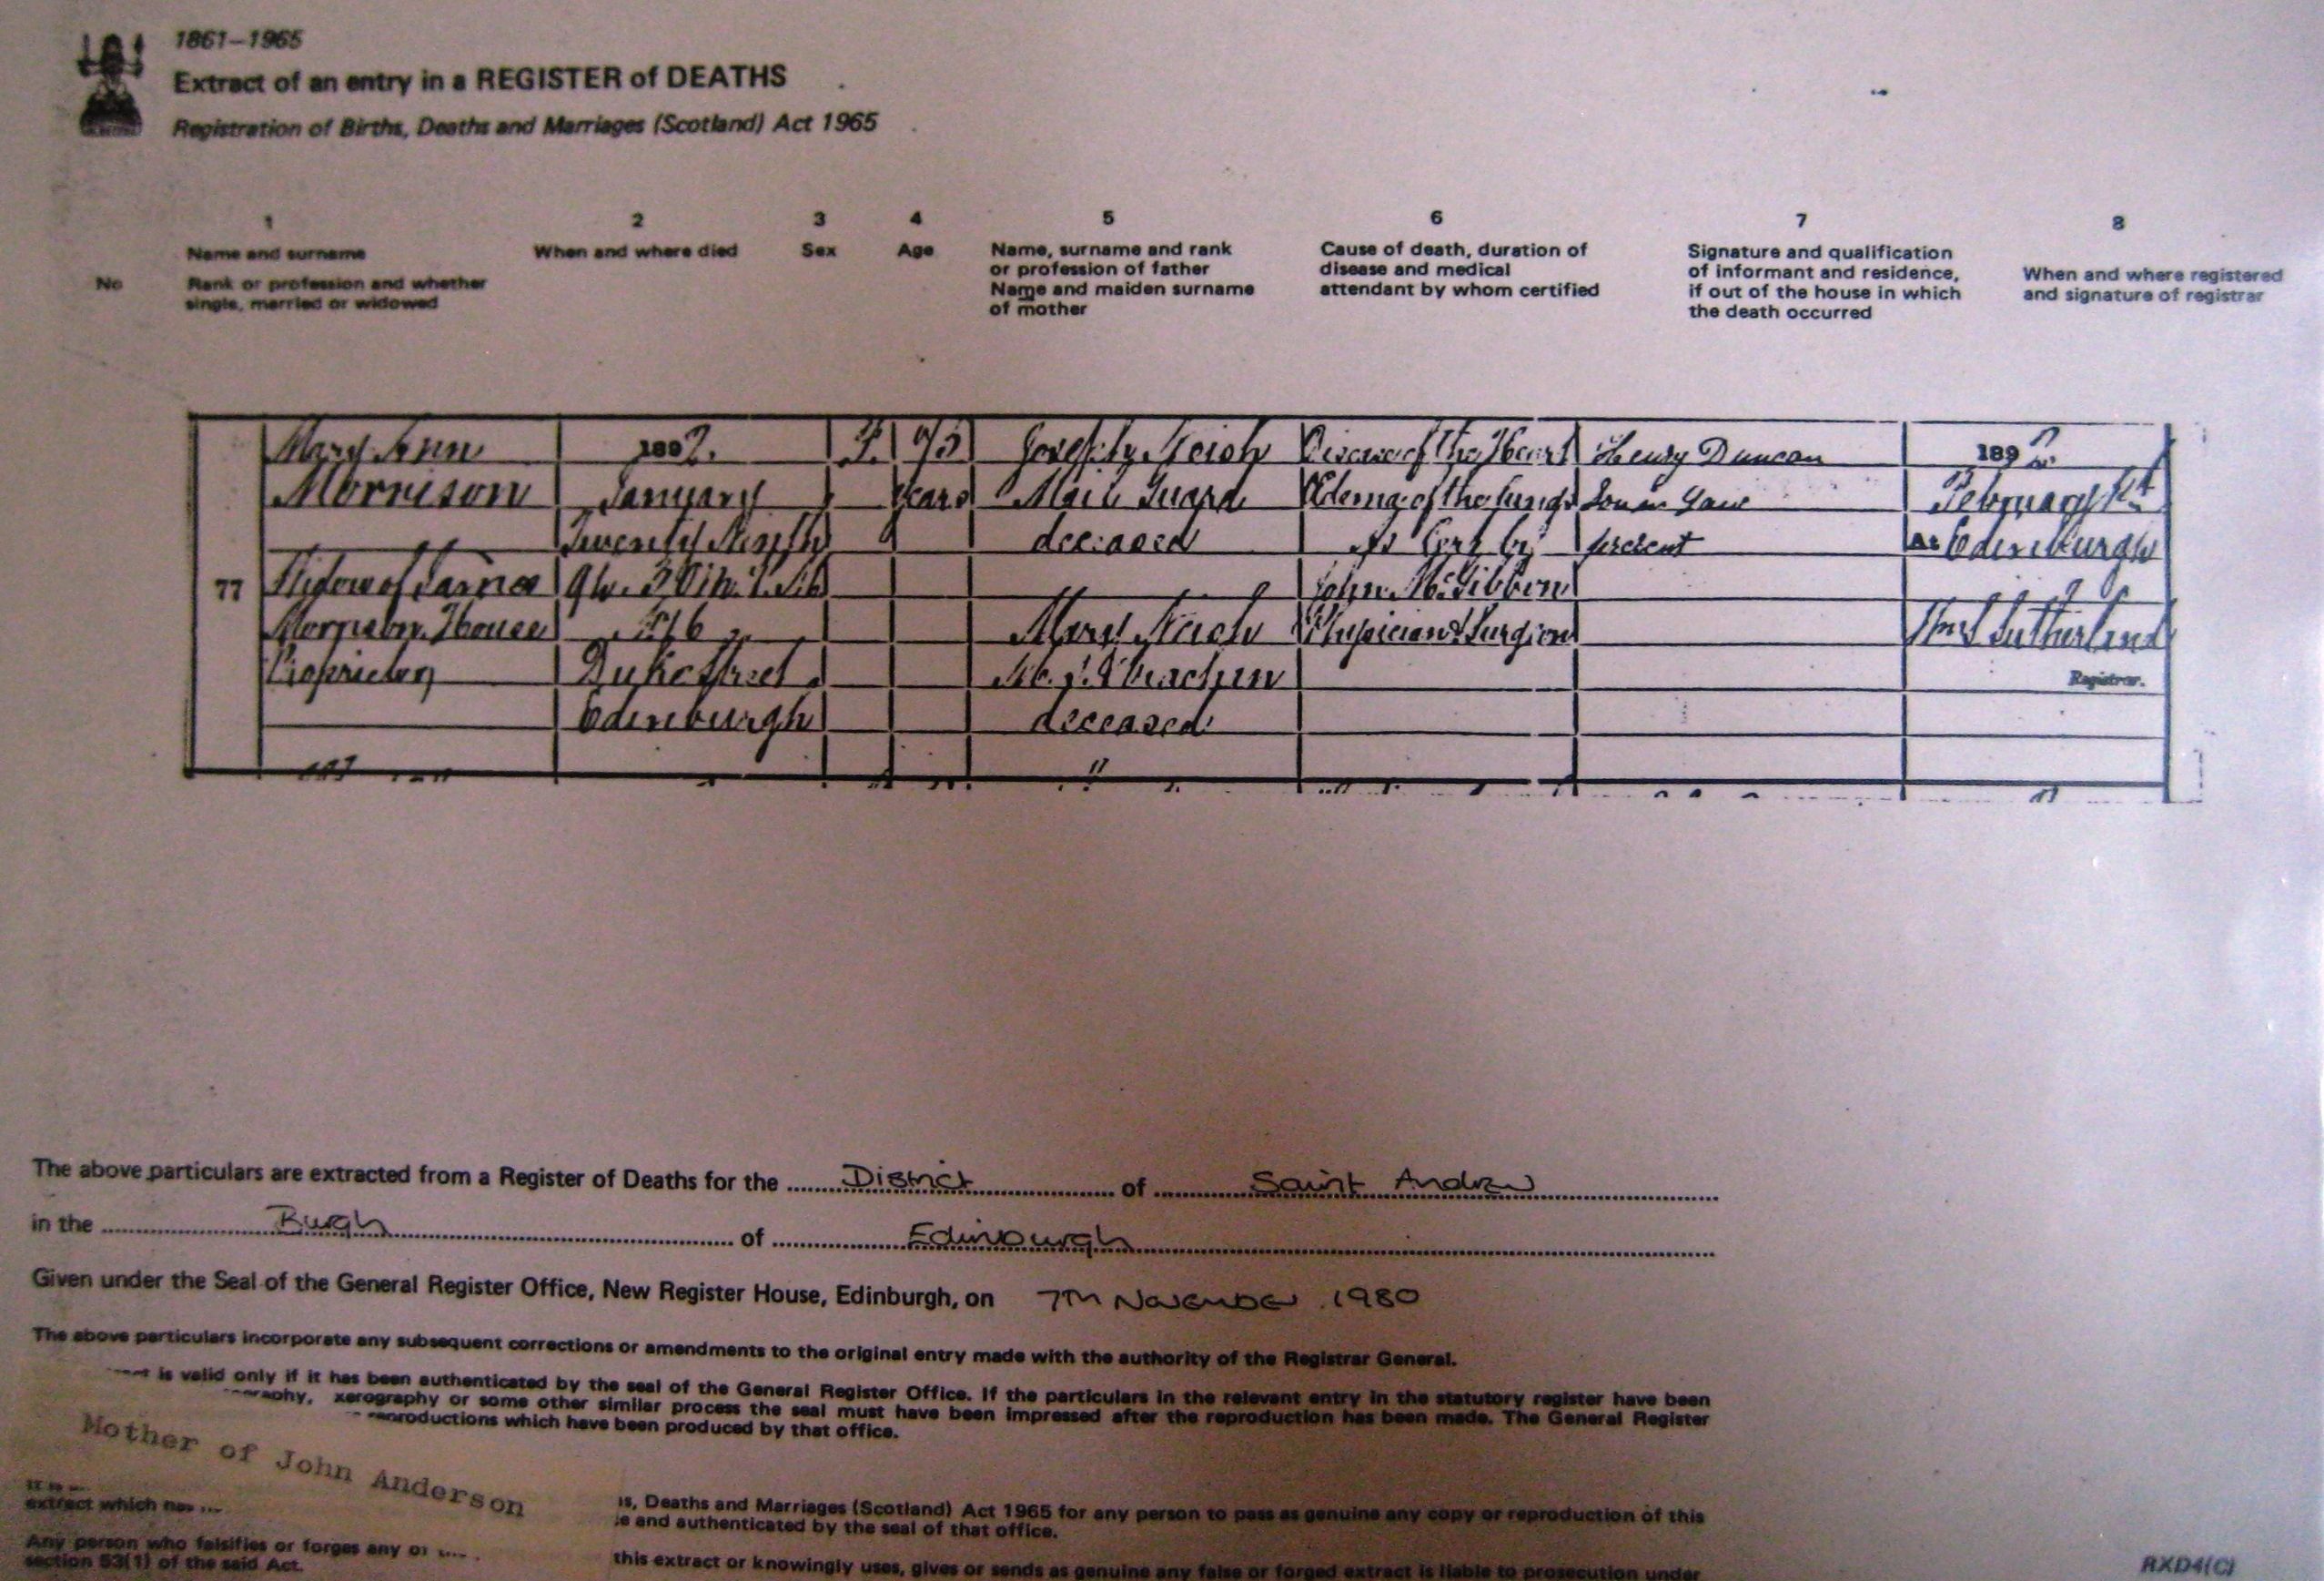 1861–1965
Extract of an entry in a REGISTER of DEATHS
Registration of Births, Deaths and Marriages (Scotland) Act 1965
1 2 3 4 5 6 7 8
No
Name and surname
Rank or profession and whether
single, married or widowed
When and where died
Sex
Age
Name, surname and rank
or profession of father
Name and maiden surname
of mother
Cause of death, duration of
disease and medical
attendant by whom certified
Signature and qualification
of informant and residence,
if out of the house in which
the death occurred
When and where registered
and signature of registrar
77
Mary Ann
Morrison
Widow of James
Morrison House
Proprietor
1892.
January
Twenty Ninth
M.
6
Duke Street
Edinburgh
F.
Years
Joseph
Mail Guard
deceased
Mary
deceased
Disease of the Heart
of the Lungs
As Cert by
John McGibbon
Physician & Surgeon
Henry Duncan
Son in Law
present
1892.
February 1st
At Edinburgh
Sutherland
Registrar.
The above particulars are extracted from a Register of Deaths for the District of Saint Andrew
in the Burgh of Edinburgh
Given under the Seal of the General Register Office, New Register House, Edinburgh, on 7TH November 1980
The above particulars incorporate any subsequent corrections or amendments to the original entry made with the authority of the Registrar General.
is valid only if it has been authenticated by the seal of the General Register Office. If the particulars in the relevant entry in the statutory register have been
xerography or some other similar process the seal must have been impressed after the reproduction has been made. The General Register
which have been produced by that office.
Mother of John Anderson
extract which
Any person who falsifies or forges any
section 53(1) of the said Act.
Deaths and Marriages (Scotland) Act 1965 for any person to pass as genuine any copy or reproduction of this
and authenticated by the seal of that office.
this extract or knowingly uses, gives or sends as genuine any false or forged extract is liable to prosecution under
RXD4(C)